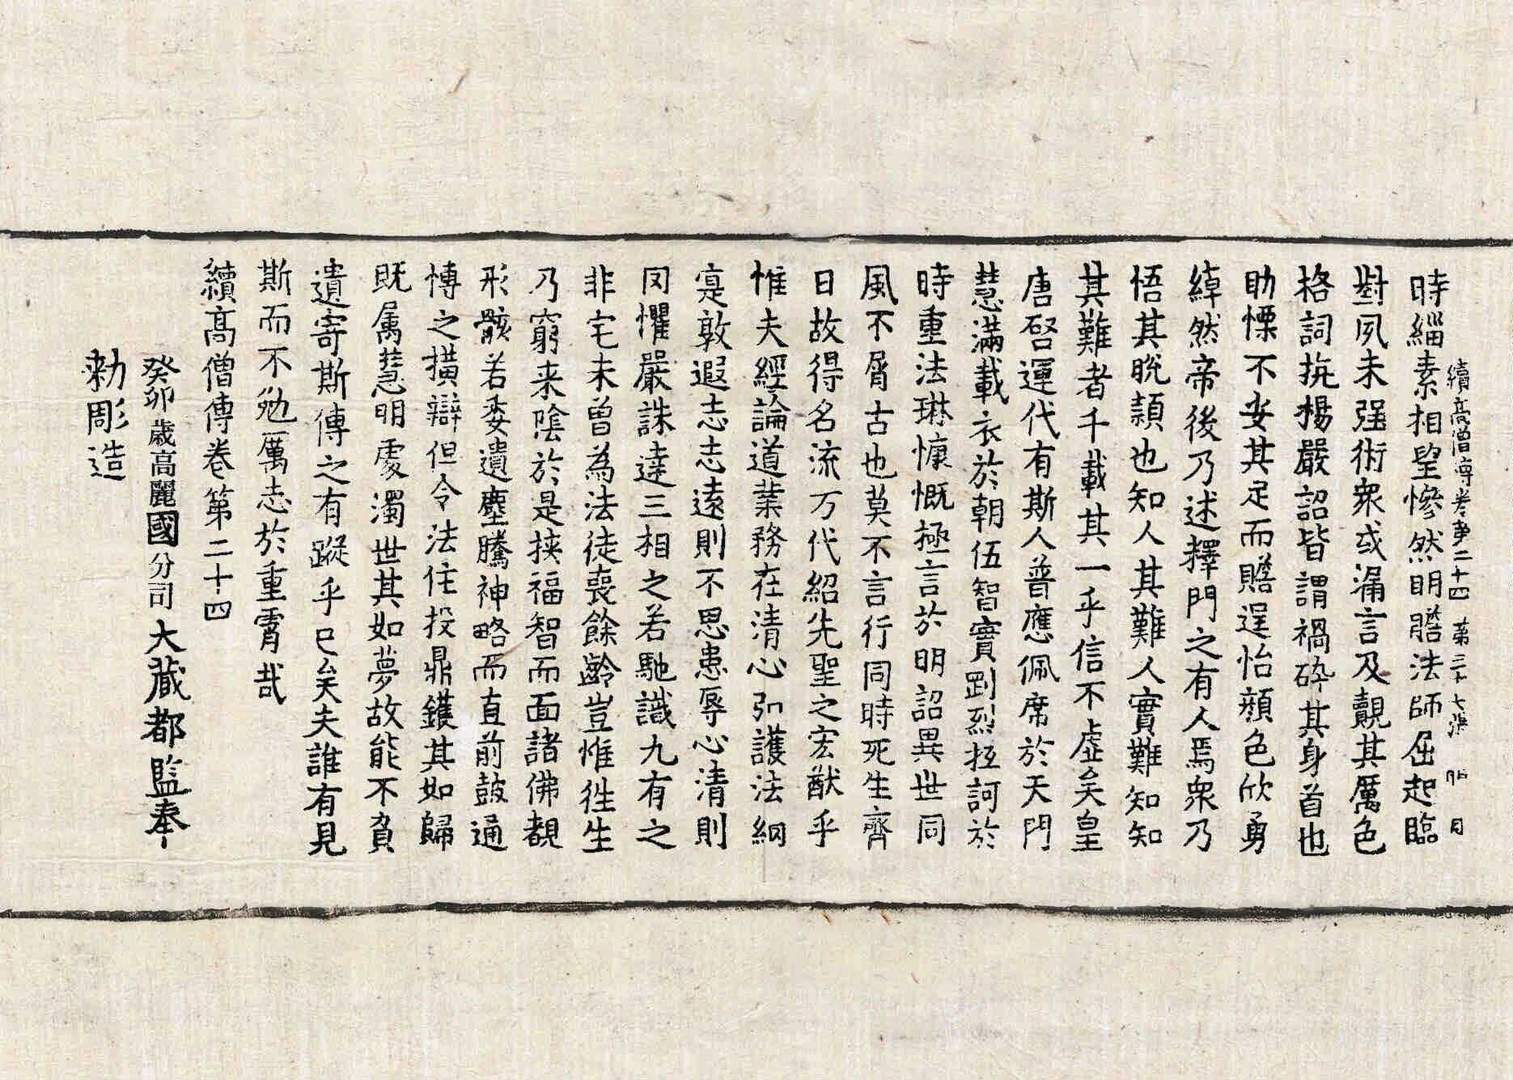 續高僧傳卷第二十四 第三十七張 明 冃
時緇素相望慘然明贍法師屈起臨
對夙未强術衆或漏言及覿其厲色
格詞抗楊嚴詔皆謂禍碎其身首也
助慄不安其足而贍逞怡顔色欣勇
綽然帝後乃述擇門之有人焉衆乃
悟其脫頴也知人其難人實難知知
其難者千載其一乎信不虛矣皇
唐啓運代有斯人普應佩席於天門
慧滿載衣於朝伍智實剛烈抂訶於
時重法琳慷慨極言於明詔異世同
風不屑古也莫不言行同時死生齊
日故得名流万代紹先聖之宏猷乎
惟夫經論道業務在清心弘護法網
寔敦遐志志遠則不思患辱心清則
罔懼嚴誅達三相之若馳識九有之
非宅未曾為法徒喪餘齡豈惟徃生
乃窮来陰於是挾福智而面諸佛覩
形骸若委遺塵騰神略而直前鼓通
愽之撗辯但令法住投鼎鑊其如歸
既属慧明處濁世其如夢故能不負
遺寄斯傳之有蹤乎已矣夫誰有見
斯而不勉厲志於重霄哉
續高僧傳卷第二十四
癸卯歲高麗國分司大藏都監奉
勑彫造